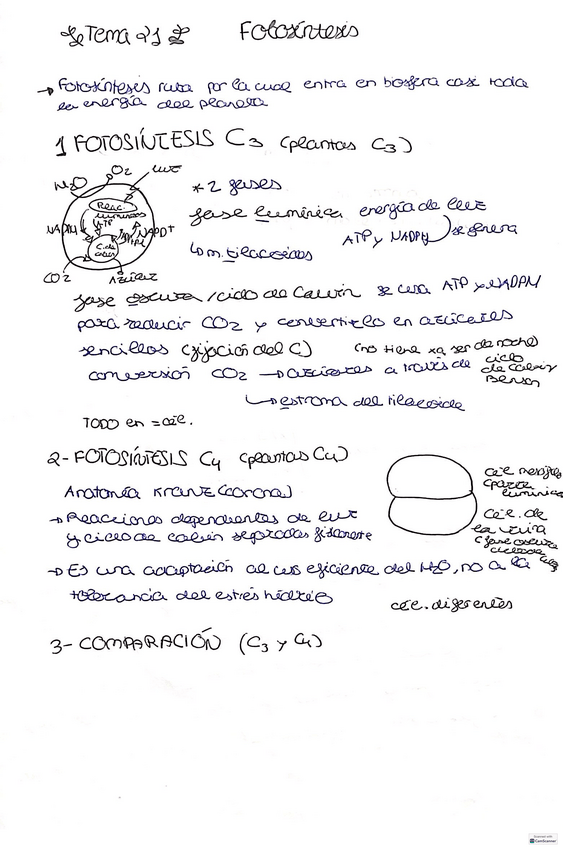 Tema 21 Fotosíntesis
→ Fotosíntesis ruta por la cual entra en biosfera casi toda
la energía del planeta
1 FOTOSÍNTESIS C3 (plantas C3)
H2O O2 luz
Reac. luminosas
NADPH ATP NADP+
C. de calvin
CO2 Azúcar
* 2 fases
fase lumínica energía de luz
ATP y NADPH se genera
↳ m. tilacoides
fase oscura / ciclo de Calvin se usa ATP y NADPH
para reducir CO2 y convertirlo en azúcares
sencillos (fijación del C) (no tiene xq ser de noche)
conversión CO2 → azúcares a través de ciclo de Calvin Benson
↳ estroma del tilacoide
TODO en = cél.
2- FOTOSÍNTESIS C4 (plantas C4)
Anatomía Kranz (corona)
→ Reacciones dependientes de luz
y ciclo de calvin separadas
cél
(parte lumínica)
Cél. de la vaina
(fase oscura
→ Es una adaptación al uso eficiente del H2O, no a la
tolerancia del estrés hídrico
cél. diferentes
3- COMPARACIÓN (C3 y C4)
Scanned with
CamScanner